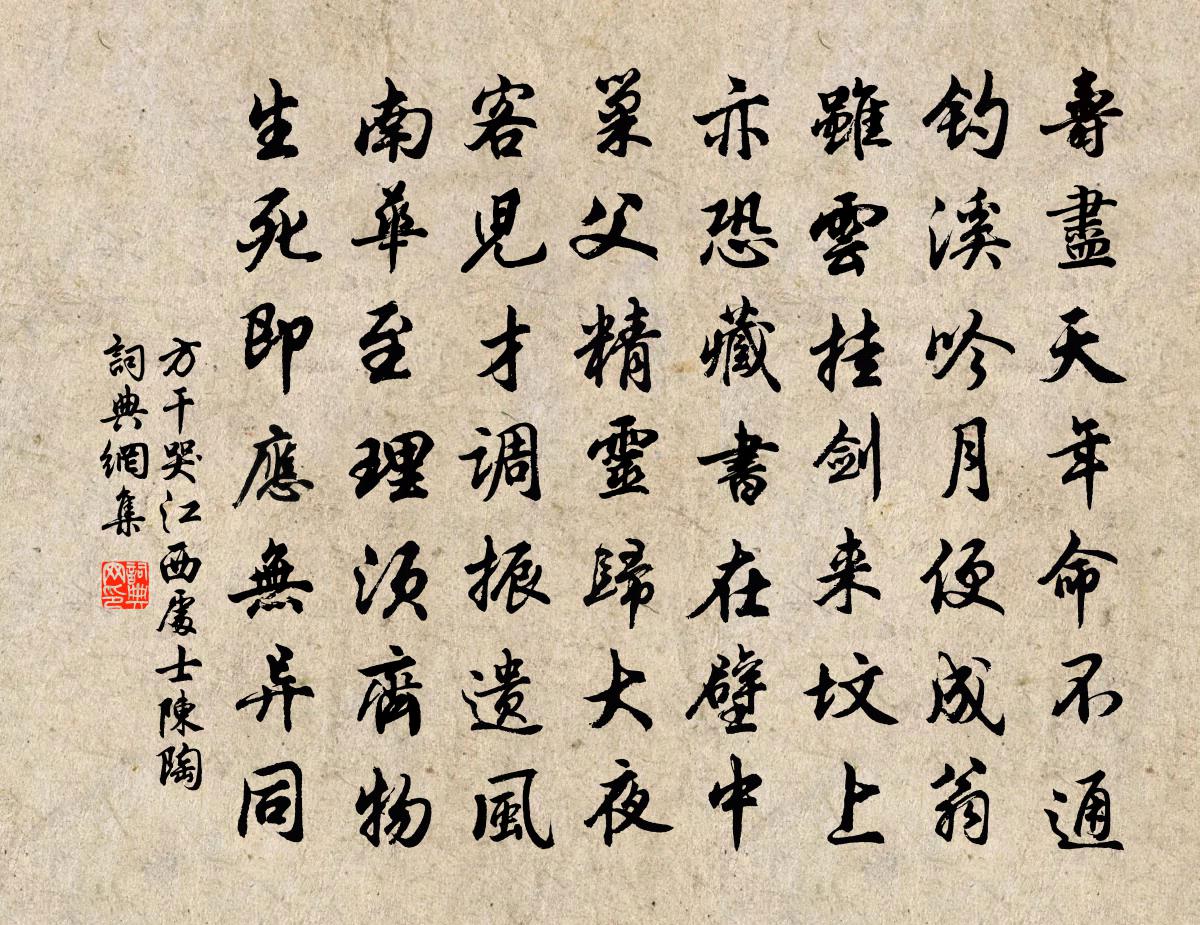 壽盡天年命不通
釣溪吟月便成翁
雖雲挂劍来坟上
亦恐藏書在壁中
巢父精靈歸大夜
客兒才調振遺風
南華至理須齊物
生死即應無异同
方干哭江西處士陳陶
詞典網集
詞典网印